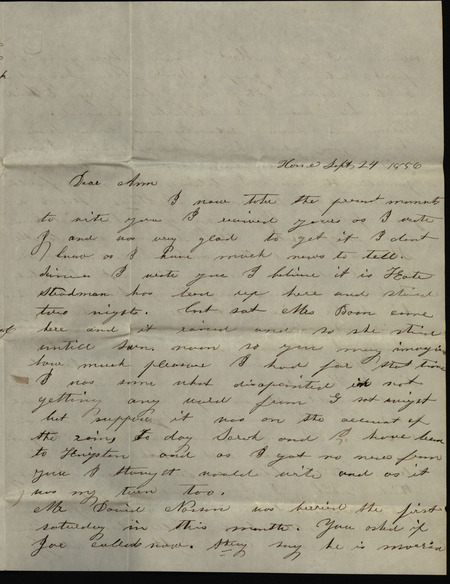 Home Sept 24 1850
Dear Ann
I now take the present moment
to rite you I recived yours as I rote
and was very glad to get it I dont
know as I have much news to tell.
since I wrote you I believe it is Kate
Steadman has been up here and staid
two nights. But sat Mrs Boon came
here and it rained and so she staid
untill Sun. noon so you may imagin
how much pleasure I had for that time
I was some what disapointed in not
getting any word from
but suppose it was on the account of
the rain, To day Sarah and I have been
to Kingston and as I got no news from
you I thought would rite and as it
was my turn too.
Mr David Nason was buried the first
saturday in this month. You asked if
Joe called now. they say he is married